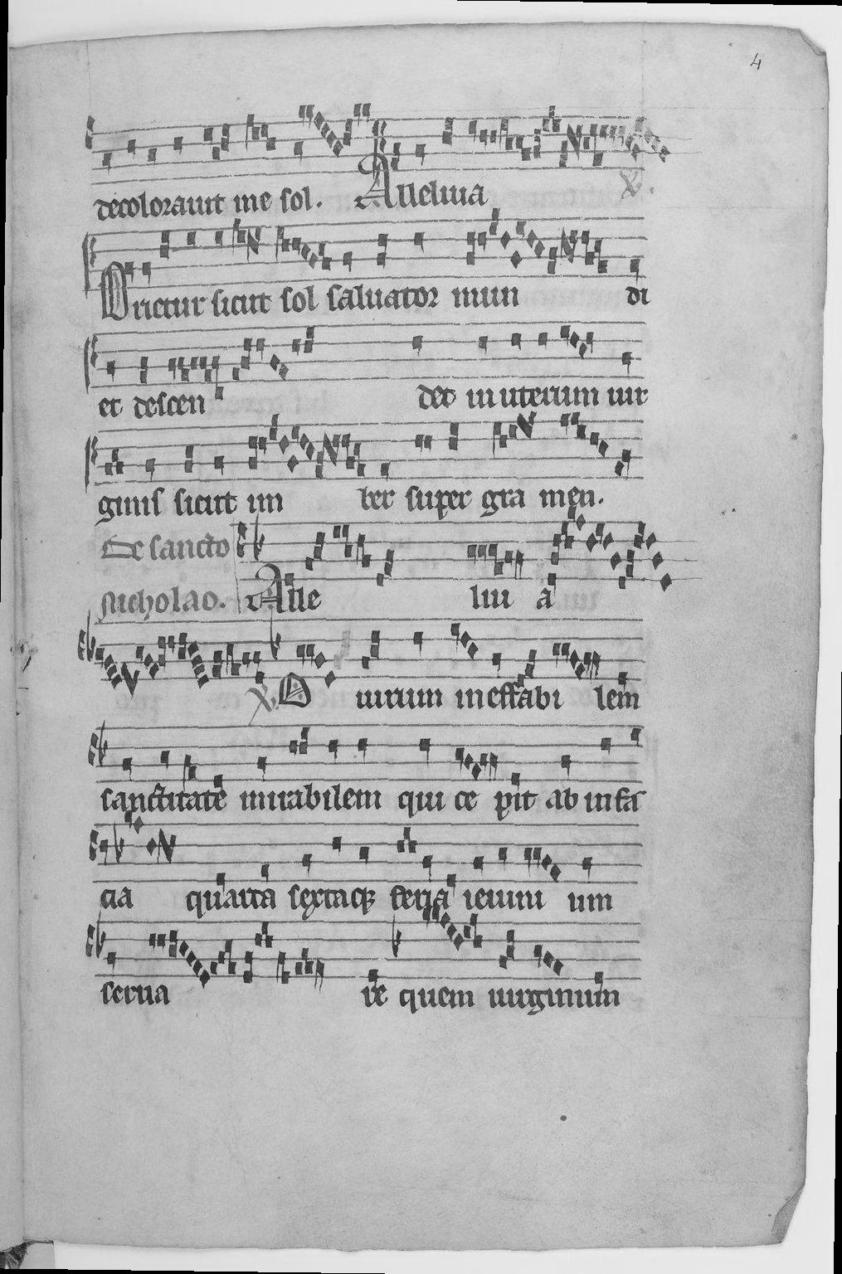 4
decolorauit me sol. Alleluia ꝟ.
Orietur sicut sol saluator mun di
et descen det in uterum uir
ginis sicut im ber super gra men.
De sancto
nicholao. Alle lui a
ꝟ. O uirum ineffabi lem
sanctitate mirabilem qui ce pit ab infā
cia quarta sextaqꝫ feria ieiuni um
serua re quem uirginum